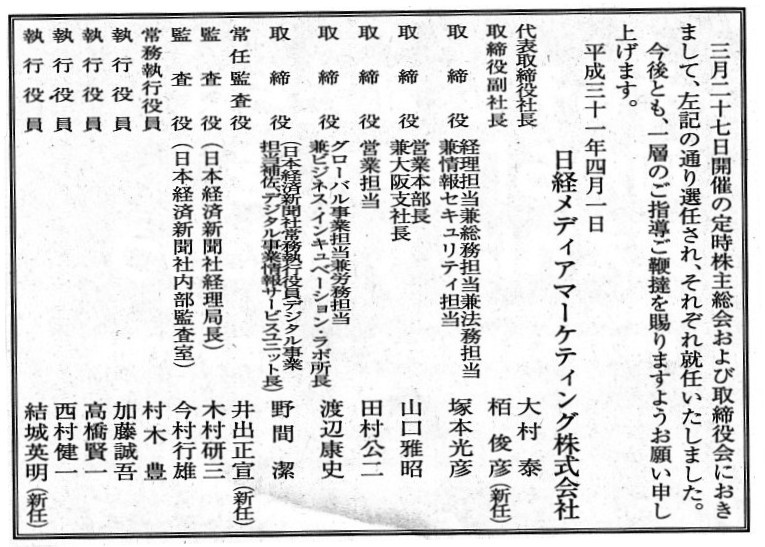 三月二十七日開催の定時株主総会および取締役会におき
まして、左記の通り選任され、それぞれ就任いたしました。
今後とも、一層のご指導ご鞭撻を賜りますようお願い申し
上げます。
平成三十一年四月一日
日経メディアマーケティング株式会社
代表取締役社長 大村泰
取締役副社長 栢俊彦(新任)
取締役 経理担当兼総務担当兼法務担当
兼情報セキュリティ担当 塚本光彦
取締役 営業本部長
兼大阪支社長 山口雅昭
取締役 営業担当 田村公二
取締役 グローバル事業担当兼労務担当
兼ビジネス・インキュベーション・ラボ所長 渡辺康史
取締役 (日本経済新聞社常務執行役員デジタル事業
担当補佐、デジタル事業情報サービスユニット長) 野間潔
常任監査役 井出正宣(新任)
監査役 (日本経済新聞社経理局長) 木村研三
監査役 (日本経済新聞社内部監査室) 今村行雄
常務執行役員 村木豊
執行役員 加藤誠吾
執行役員 高橋賢一
執行役員 西村健一
執行役員 結城英明(新任)